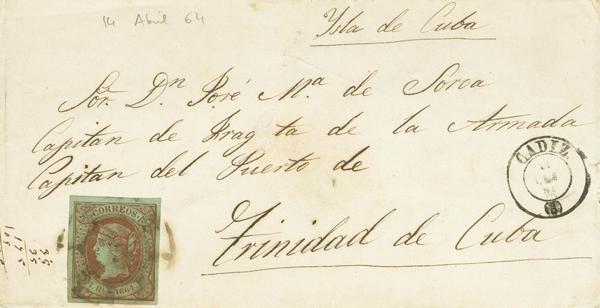 14 Abril 64
Isla de Cuba
Sor. Dn José Ma. de Soroa
Capitan de Fragta de la Armada
Capitan del Puerto de
Trinidad de Cuba
CADIZ
CORREOS
1864